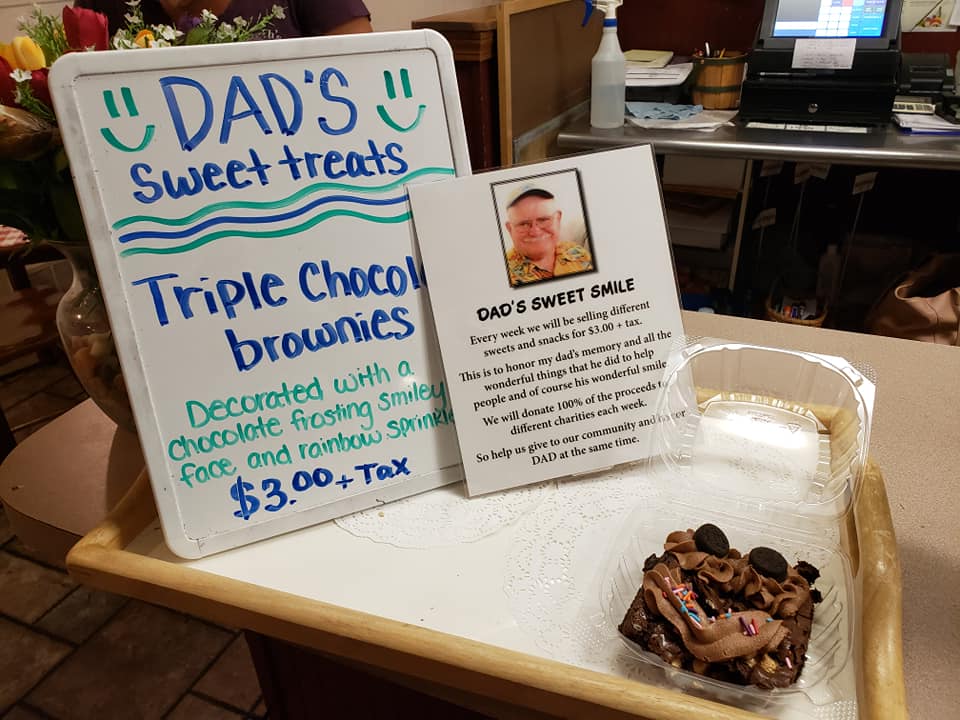 DAD'S
sweet treats
Triple Chocol
brownies
Decorated with a
chocolate frosting smiley
face and rainbow sprinkle
$3.00 + Tax
DAD'S SWEET SMILE
Every week we will be selling different
sweets and snacks for $3.00 + tax.
This is to honor my dad's memory and all the
wonderful things that he did to help
people and of course his wonderful smile
We will donate 100% of the proceeds to
different charities each week.
So help us give to our community and honor
DAD at the same time.